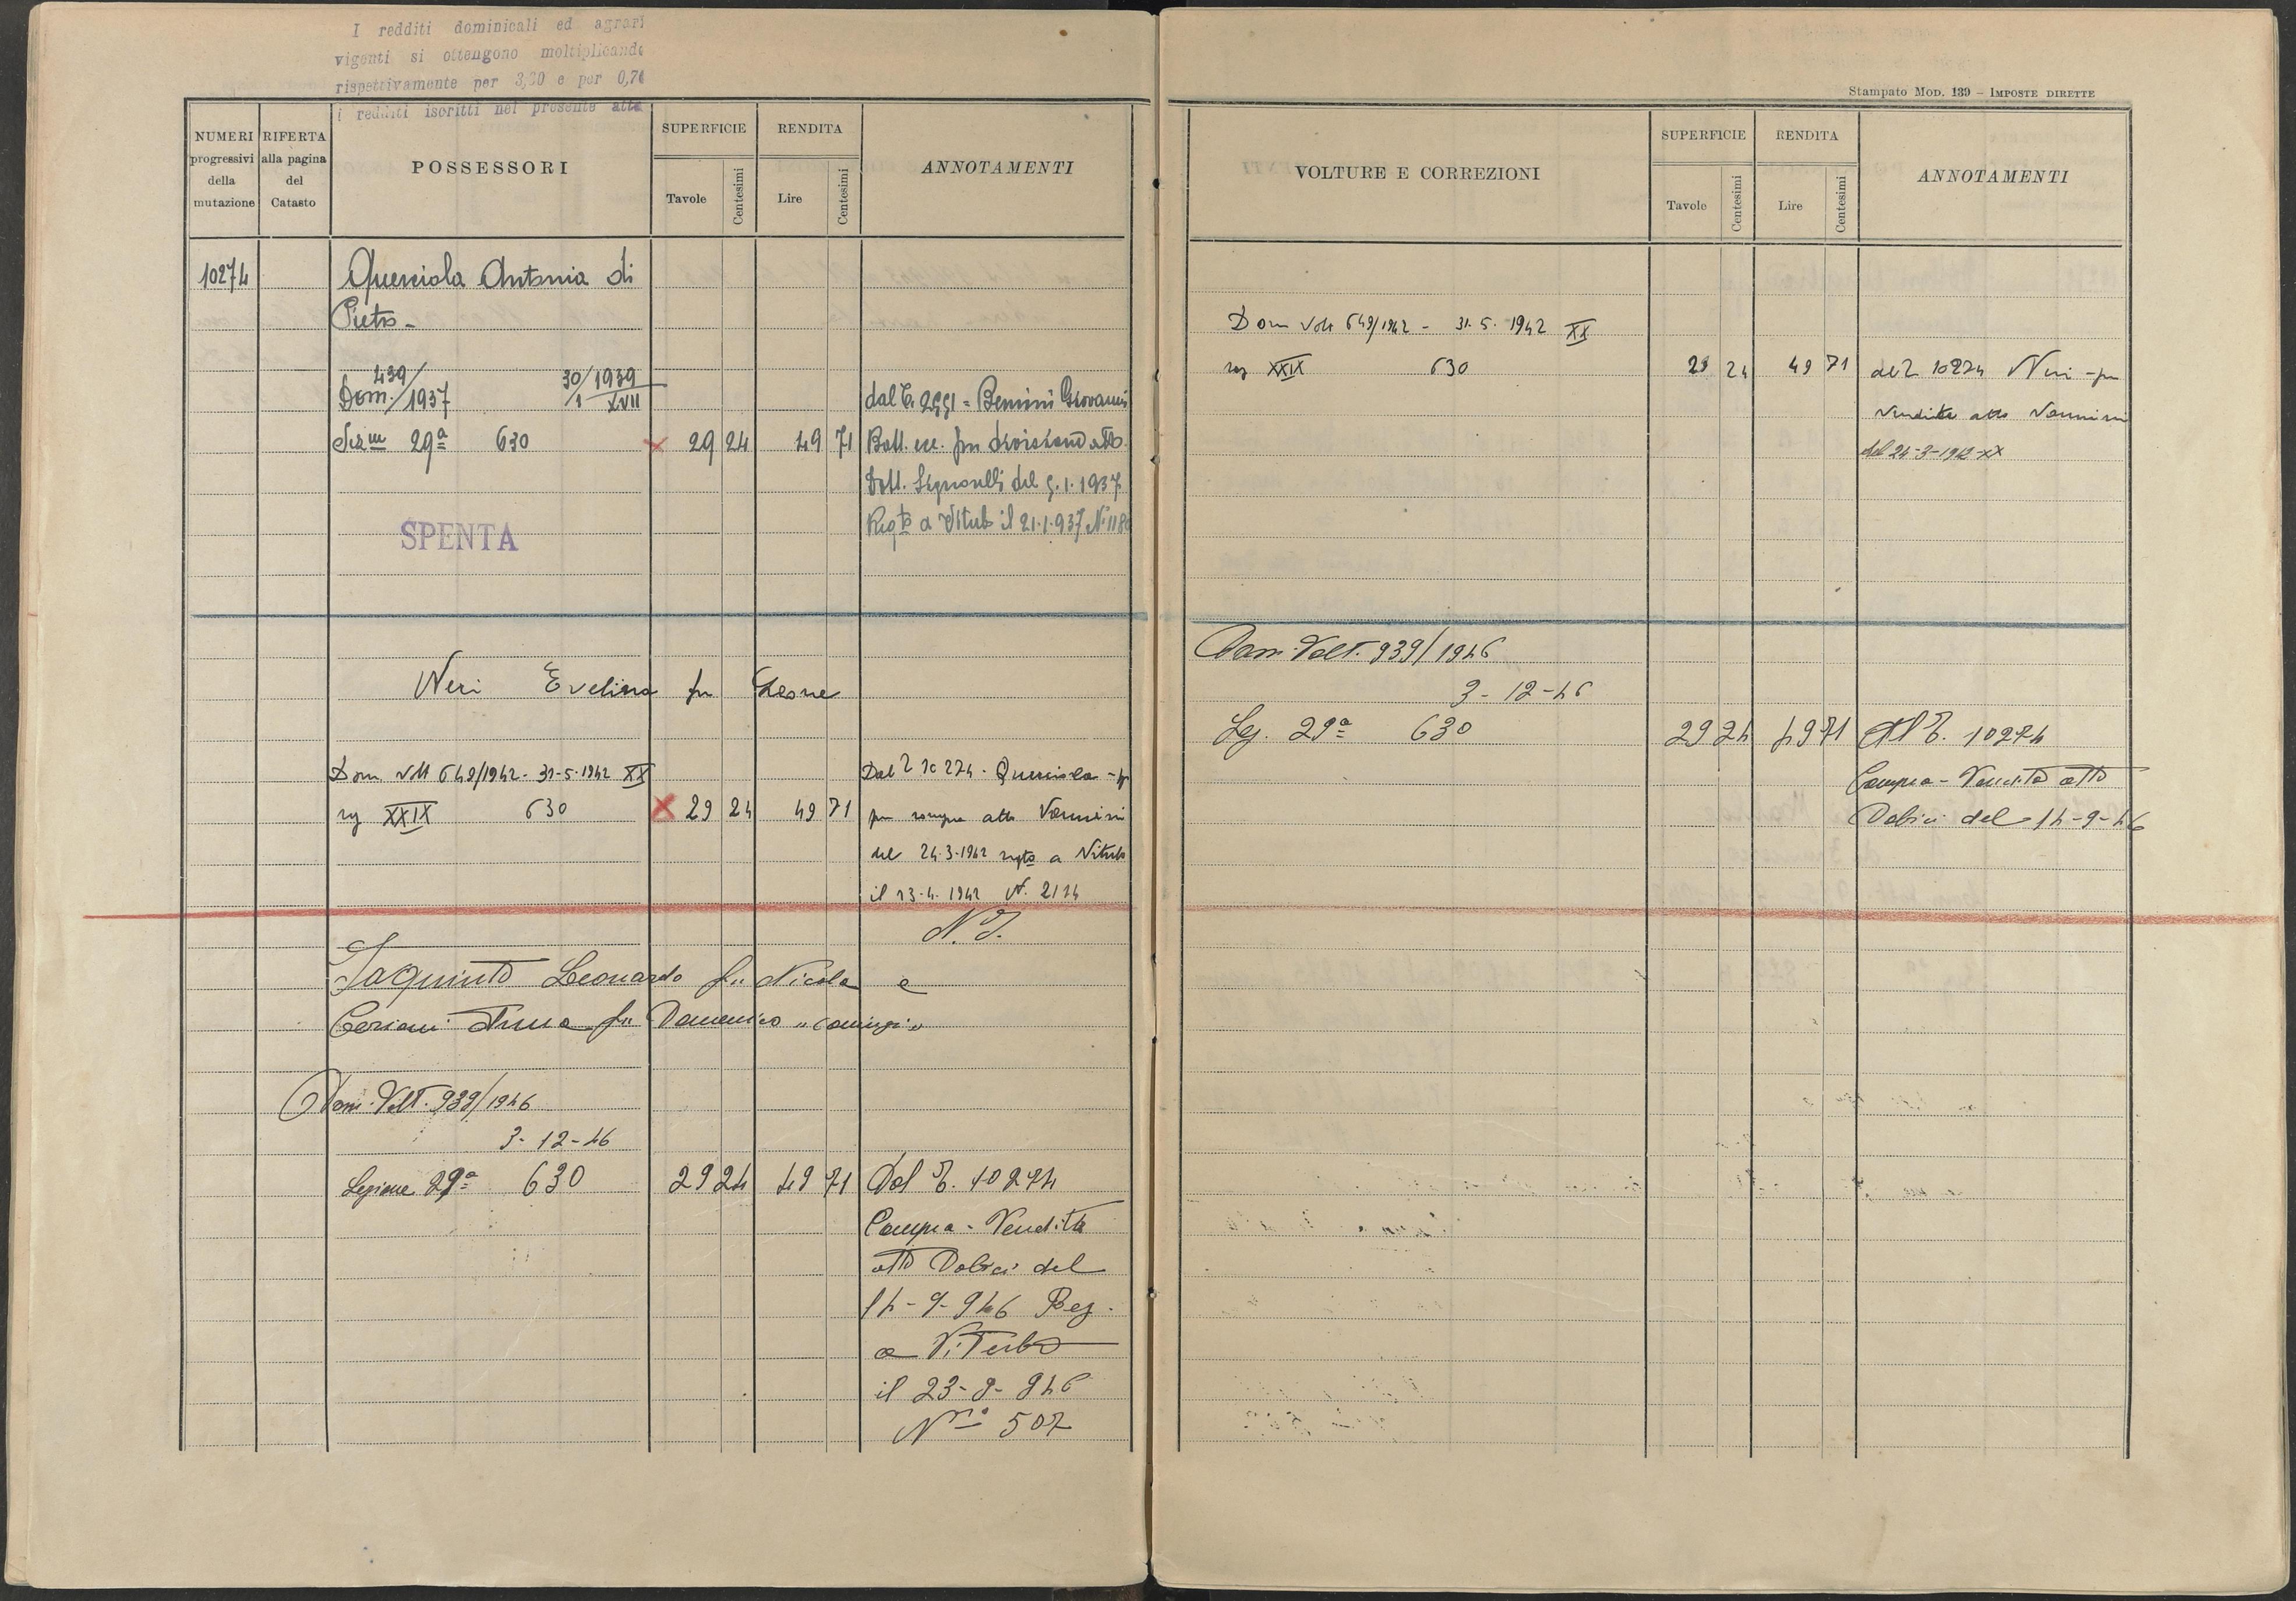 I redditi dominicali ed agrari
vigenti si ottengono moltiplicando
rispettivamente per 3,20 e per 0,70
i redditi iscritti nel presente atto
NUMERI progressivi della mutazione
RIFERTA alla pagina del Catasto
POSSESSORI
SUPERFICIE
Tavole
Centesimi
RENDITA
Lire
Centesimi
ANNOTAMENTI
10274 Querciola Antonia di
Pietro -
439/ 30/1939
Dom. /1937 /1 XVII
Sez.ne 29ª 630 x 29 24 49 71
dal
Bernini Giovanni
Batt. ecc. per divisione atto
Dott. Signorelli del 9.1.1937
Regto a Vitrbo il 21.1.937 N. 118
SPENTA
Neri Evelina fu Leone
Dom Volt 649/1942 - 31-5-1942 XX
sez XXIX 630 x 29 24 49 71
Dal 10274 - Querciola - p
per compra atto Vannini
del 24-3-1942 regto a Viterbo
il 13-4-1942 N. 2124
N. T.
Iaquinto Leonardo fu Nicola e
Ceriani Anna fu Domenico "coniugi"
Dom. Volt. 939/1946
3-12-46
Sezione 29ª 630 29 24 49 71
Dal T. 10274
Compra-Vendita
atto Dobici del
14-9-946 Reg.
a Viterbo
il 23-9-946
Nro 507
Stampato Mod. 139 – IMPOSTE DIRETTE
VOLTURE E CORREZIONI
SUPERFICIE
Tavole
Centesimi
RENDITA
Lire
Centesimi
ANNOTAMENTI
Dom Volt 649/1942 - 31-5-1942 XX
sez XXIX 630 29 24 49 71 al 10274 Neri - per
Vendita atto Vannini
del 24-3-1942-XX
Dom. Volt. 939/1946
3-12-46
Sez. 29ª 630 29 24 49 71 Al T. 10274
Compra-Vendita atto
Dobici del 14-9-46